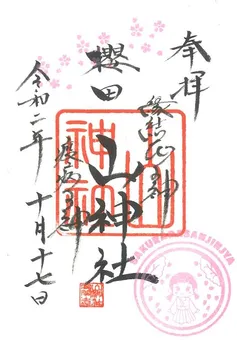 奉拝
縁結びの神
櫻田
山神社
疫病の神
令和二年 十月十七日
山神社
SAKURADASANJINJYA